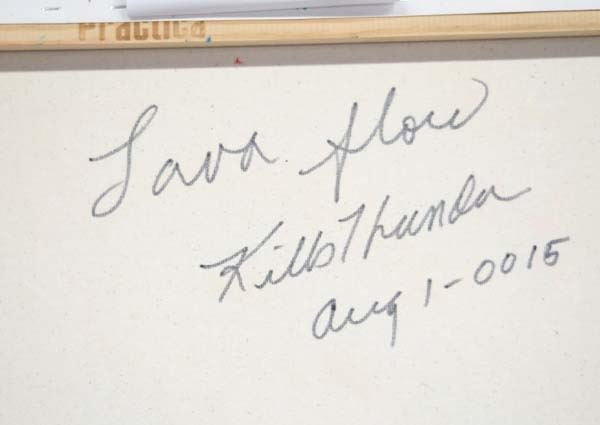 Practica
Lava flow
KillsThunder
Aug 1-0015